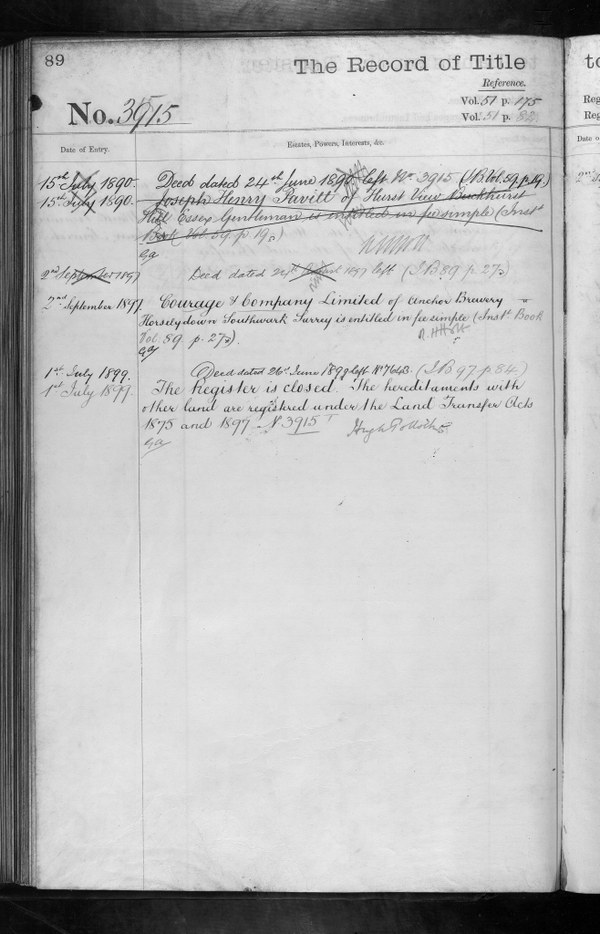 89
The Record of Title
Reference.
No. 3915
Vol. 51 p. 175
Vol. 51 p.
Date of Entry.
Estates, Powers, Interests, &c.
15th July 1890. Deed dated 24th June 1890 left No 3915 (I.B. Vol. 59. p. 19.)
15th July 1890. Joseph Henry Pavitt of Hurst View Buckhurst
Hill Essex Gentleman is entitled in fee simple (Inst
Book Vol. 59. p. 19.)
2nd September 1897 Deed dated 1897 left (I B 89. p. 273)
2nd September 1897 Courage & Company Limited of Anchor Brewery
Horselydown Southwark Surrey is entitled in fee simple (Inst. Book
Vol. 59. p. 273).
1st July 1899. Deed dated 26th June 1899 left No 7643. (I B 97 p. 84.)
1st July 1899. The Register is closed. The hereditaments with
other land are registred under the Land Transfer Acts
1875 and 1897 N 3915 T
Hugh Pollock
to
Reg
Reg
Date o